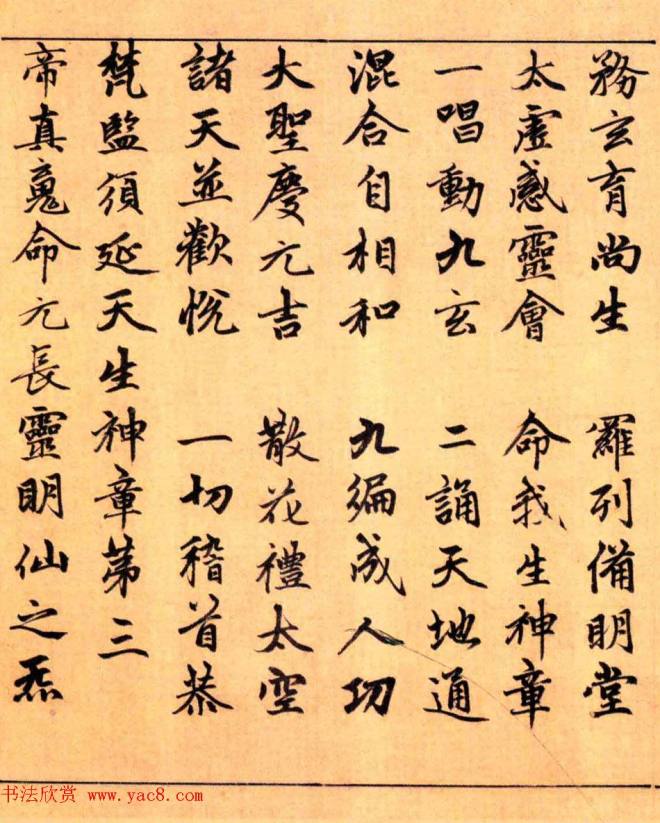 務玄育尚生 羅列備明堂
太虛感靈會 命我生神章
一唱動九玄 二誦天地通
混合自相和 九編成人功
大聖慶元吉 散花禮太空
諸天並歡悅 一切稽首恭
梵監須延天生神章第三
帝真䰟命元長靈明仙之炁
书法欣赏 www.yac8.com